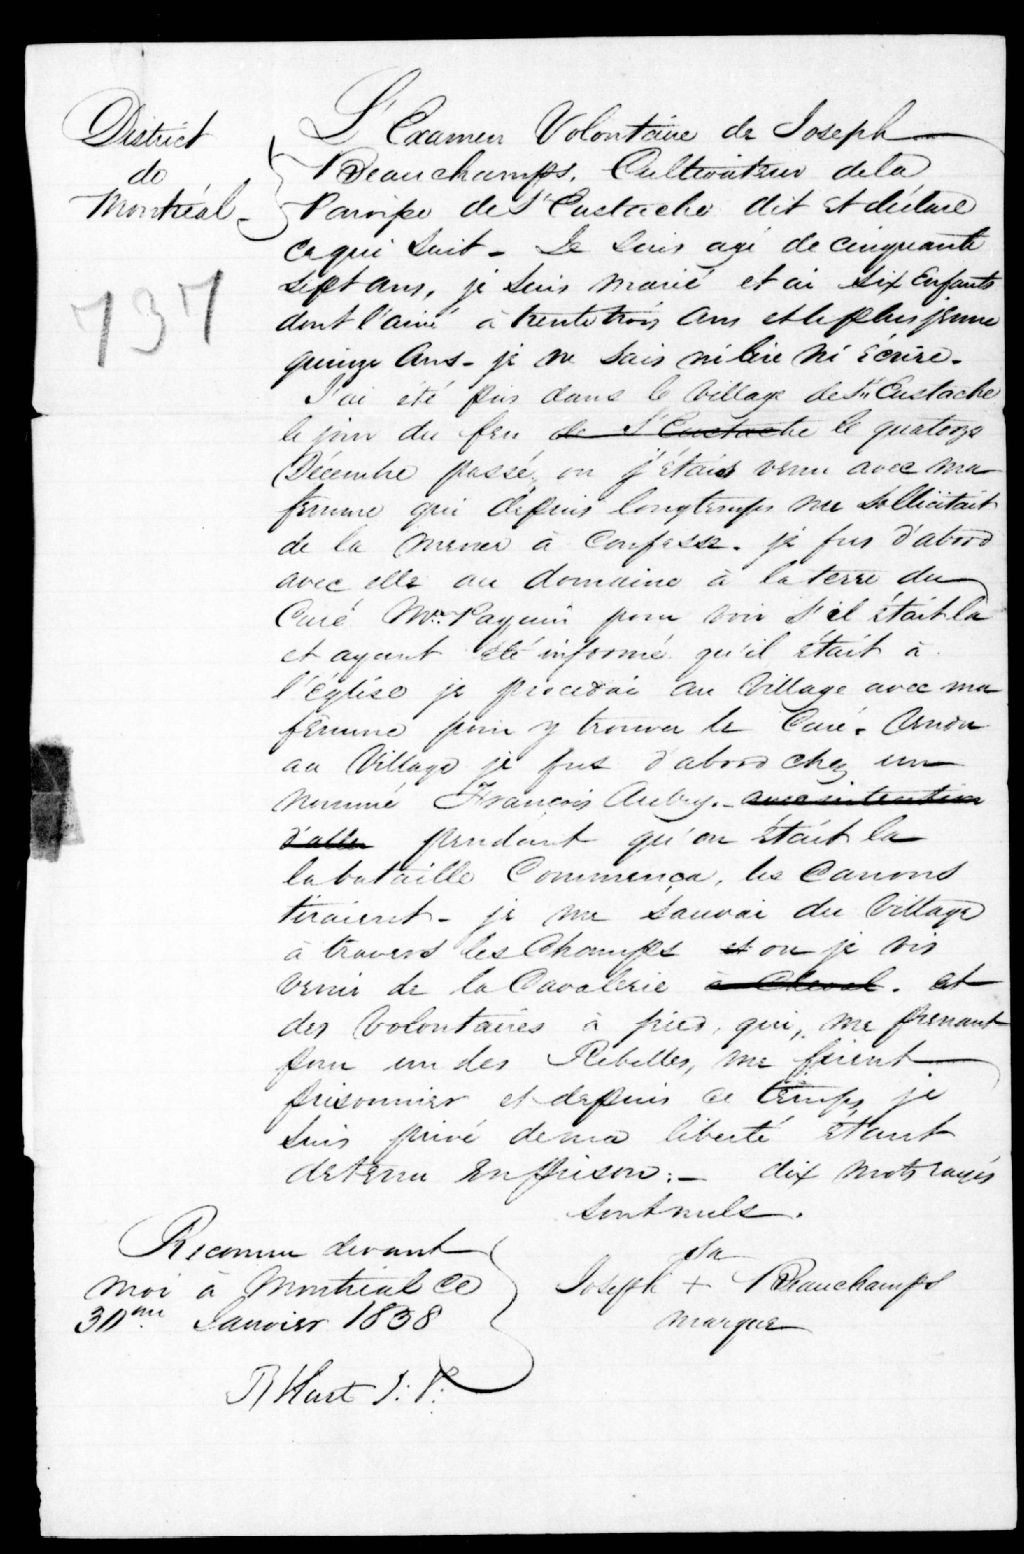 District
de
Montréal.
737
L'Examen Volontaire de Joseph
Beauchamps, Cultivateur de la
Paroisse de St Eustache dit et déclare
ce qui suit - Je suis agé de cinquante
sept ans, je suis marié et ai six Enfants
dont l'ainé a trente trois ans et le plus jeune
quinze ans - je ne sais ni lire ni écrire.
J'ai été pris dans le Village de St Eustache
le jour du feu de St Eustache le quatorze
Décembre passé, ou j'étais venu avec ma
femme qui depuis longtemps me sollicitait
de la mener à confesse. je fus d'abord
avec elle au domaine à la terre du
Curé Mr. Paquin pour voir s'il était là
et ayant été informé qu'il était à
l'église je procédai au Village avec ma
femme pour y trouver le Curé. Arrivé
au Village je fus d'abord chez un
nommé François Aubry. avec intention
d'aller pendant qu'on était la
la bataille commença, les canons
tiraient - je me sauvai du Village
à travers les Champs et ou je vis
venir de la Cavalerie à Cheval. et
des Volontaires à pied, qui, me prenant
pour un des Rebelles, me firent
prisonnier et depuis ce temps je
suis privé de ma liberté étant
detenu en prison. - dix mots rayés
sont nuls.
Reconnu devant
moi à Montréal ce
30me Janvier 1838
sa
Joseph + Beauchamps
marque
B Hart J. P.